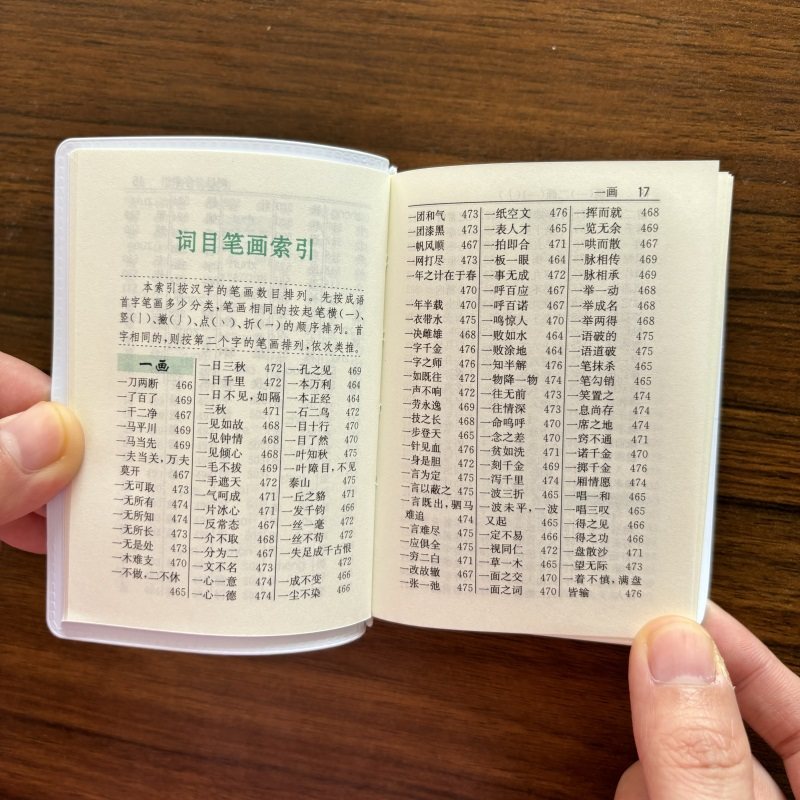 词目笔画索引
本索引按汉字的笔画数目排列。先按成语
首字笔画多少分类，笔画相同的按起笔横(一)、
竖(丨)、撇(丿)、点(丶)、折(一)的顺序排列。首
字相同的，则按第二个字的笔画排列，依次类推。
一画
一刀两断 466
一了百了 469
一干二净 467
一马平川 469
一马当先 469
一夫当关，万夫
莫开 467
一无可取 473
一无所有 474
一无所知 474
一无所长 473
一无是处 473
一木难支 470
一不做，二不休
465
一日三秋 472
一日千里 472
一日不见，如隔
三秋 471
一见如故 468
一见钟情 468
一见倾心 468
一毛不拔 469
一手遮天 472
一气呵成 471
一片冰心 471
一反常态 467
一介不取 468
一分为二 467
一文不名 473
一心一意 474
一心一德 474
一孔之见 469
一本万利 464
一本正经 464
一石二鸟 472
一日十行 470
一目了然 470
一叶知秋 475
一叶障目，不见
泰山 475
一丘之貉 471
一发千钧 466
一丝一毫 472
一丝不苟 472
一失足成千古恨
472
一成不变 466
一尘不染 466
一画 17
一团和气 473
一团漆黑 473
一帆风顺 467
一网打尽 473
一年之计在于春
470
一年半载 470
一衣带水 475
一决雌雄 468
一字千金 476
一字之师 476
一如既往 472
一声不响 472
一劳永逸 469
一技之长 468
一步登天 465
一针见血 476
一身是胆 472
一言为定 475
一言以蔽之 475
一言既出，驷马
难追 474
一言难尽 475
一应俱全 475
一穷二白 471
一改故辙 467
一张一弛 475
一纸空文 476
一表人才 465
一拍即合 471
一板一眼 464
一事无成 472
一呼百应 467
一呼百诺 467
一鸣惊人 470
一败如水 464
一败涂地 464
一知半解 476
一物降一物 474
一往无前 473
一往情深 473
一命呜呼 470
一念之差 470
一贫如洗 471
一刻千金 469
一泻千里 474
一波三折 465
一波未平，一波
又起 465
一定不易 466
一视同仁 472
一草一木 465
一面之交 470
一面之词 470
一挥而就 468
一览无余 469
一哄而散 467
一脉相传 469
一脉相承 469
一举一动 468
一举成名 468
一举两得 468
一语破的 475
一语道破 475
一笔抹杀 465
一笔勾销 465
一笑置之 474
一息尚存 474
一席之地 474
一窍不通 471
一诺千金 470
一掷千金 476
一厢情愿 474
一唱一和 465
一唱三叹 465
一得之见 466
一得之功 466
一盘散沙 471
一望无际 473
一着不慎，满盘
皆输 476